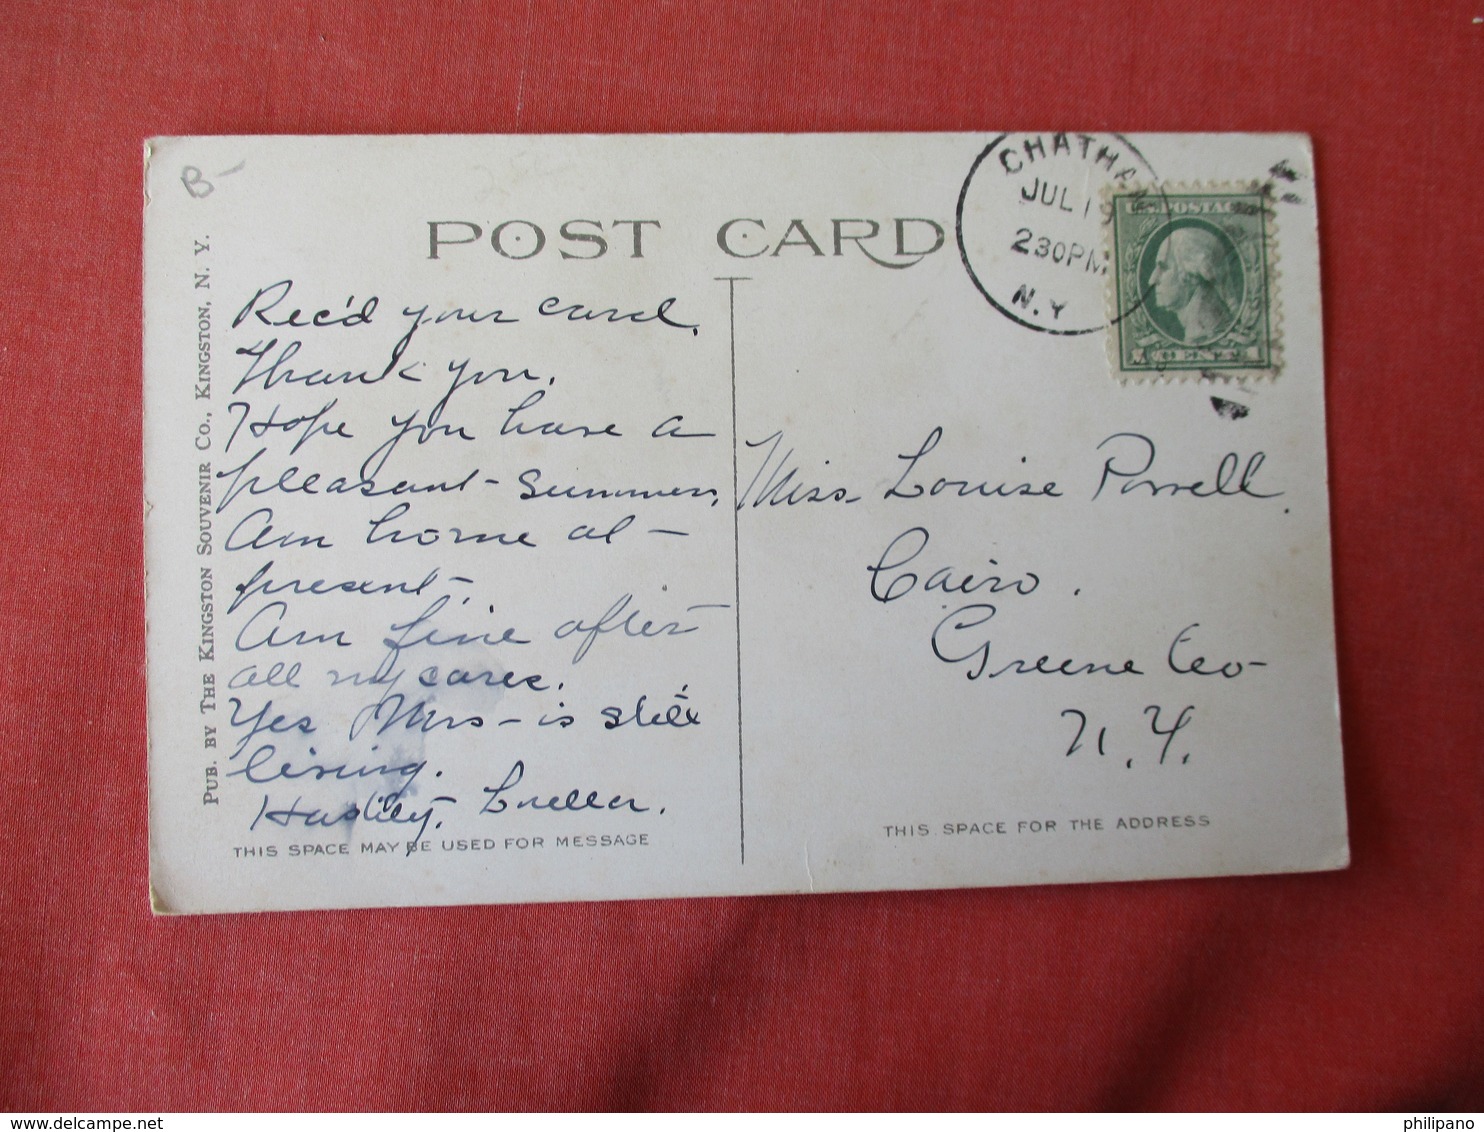 B-
POST CARD
CHATHAM
JUL 19
230PM
N.Y
U.S. POSTAGE
PUB. BY THE KINGSTON SOUVENIR CO., KINGSTON, N. Y.
Rec'd your card.
Thank you.
Hope you have a
pleasant - summer,
Am home at -
present -.
Am fine after
all my cares.
Yes Mrs - is still
living.
Hastily, Luella.
THIS SPACE MAY BE USED FOR MESSAGE
Miss Louise Powell
Cairo.
Greene Co-
N.Y.
THIS SPACE FOR THE ADDRESS
philipano